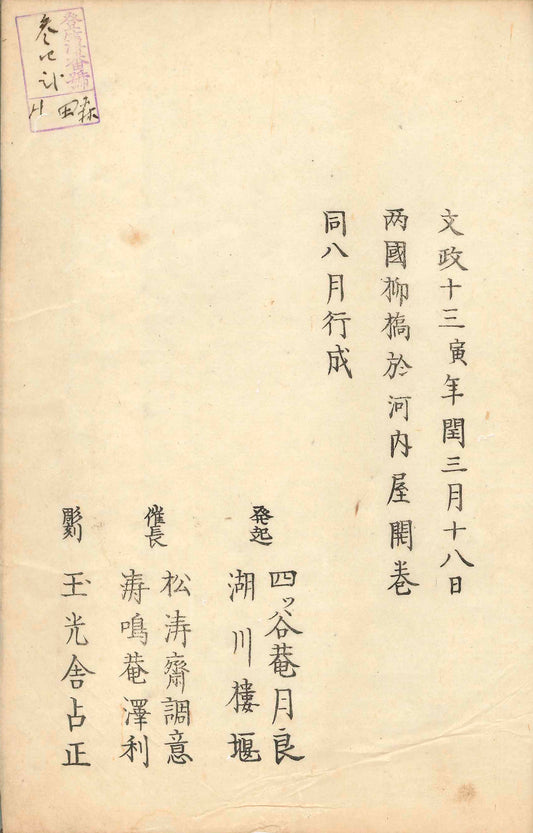 文政十三寅年閏三月十八日
両國柳橋於河内屋開巻
同八月行成
発起
四ッ谷菴月良
湖川樓堰
催長
松涛齋調意
涛鳴菴澤利
彫刻
玉光舎占正